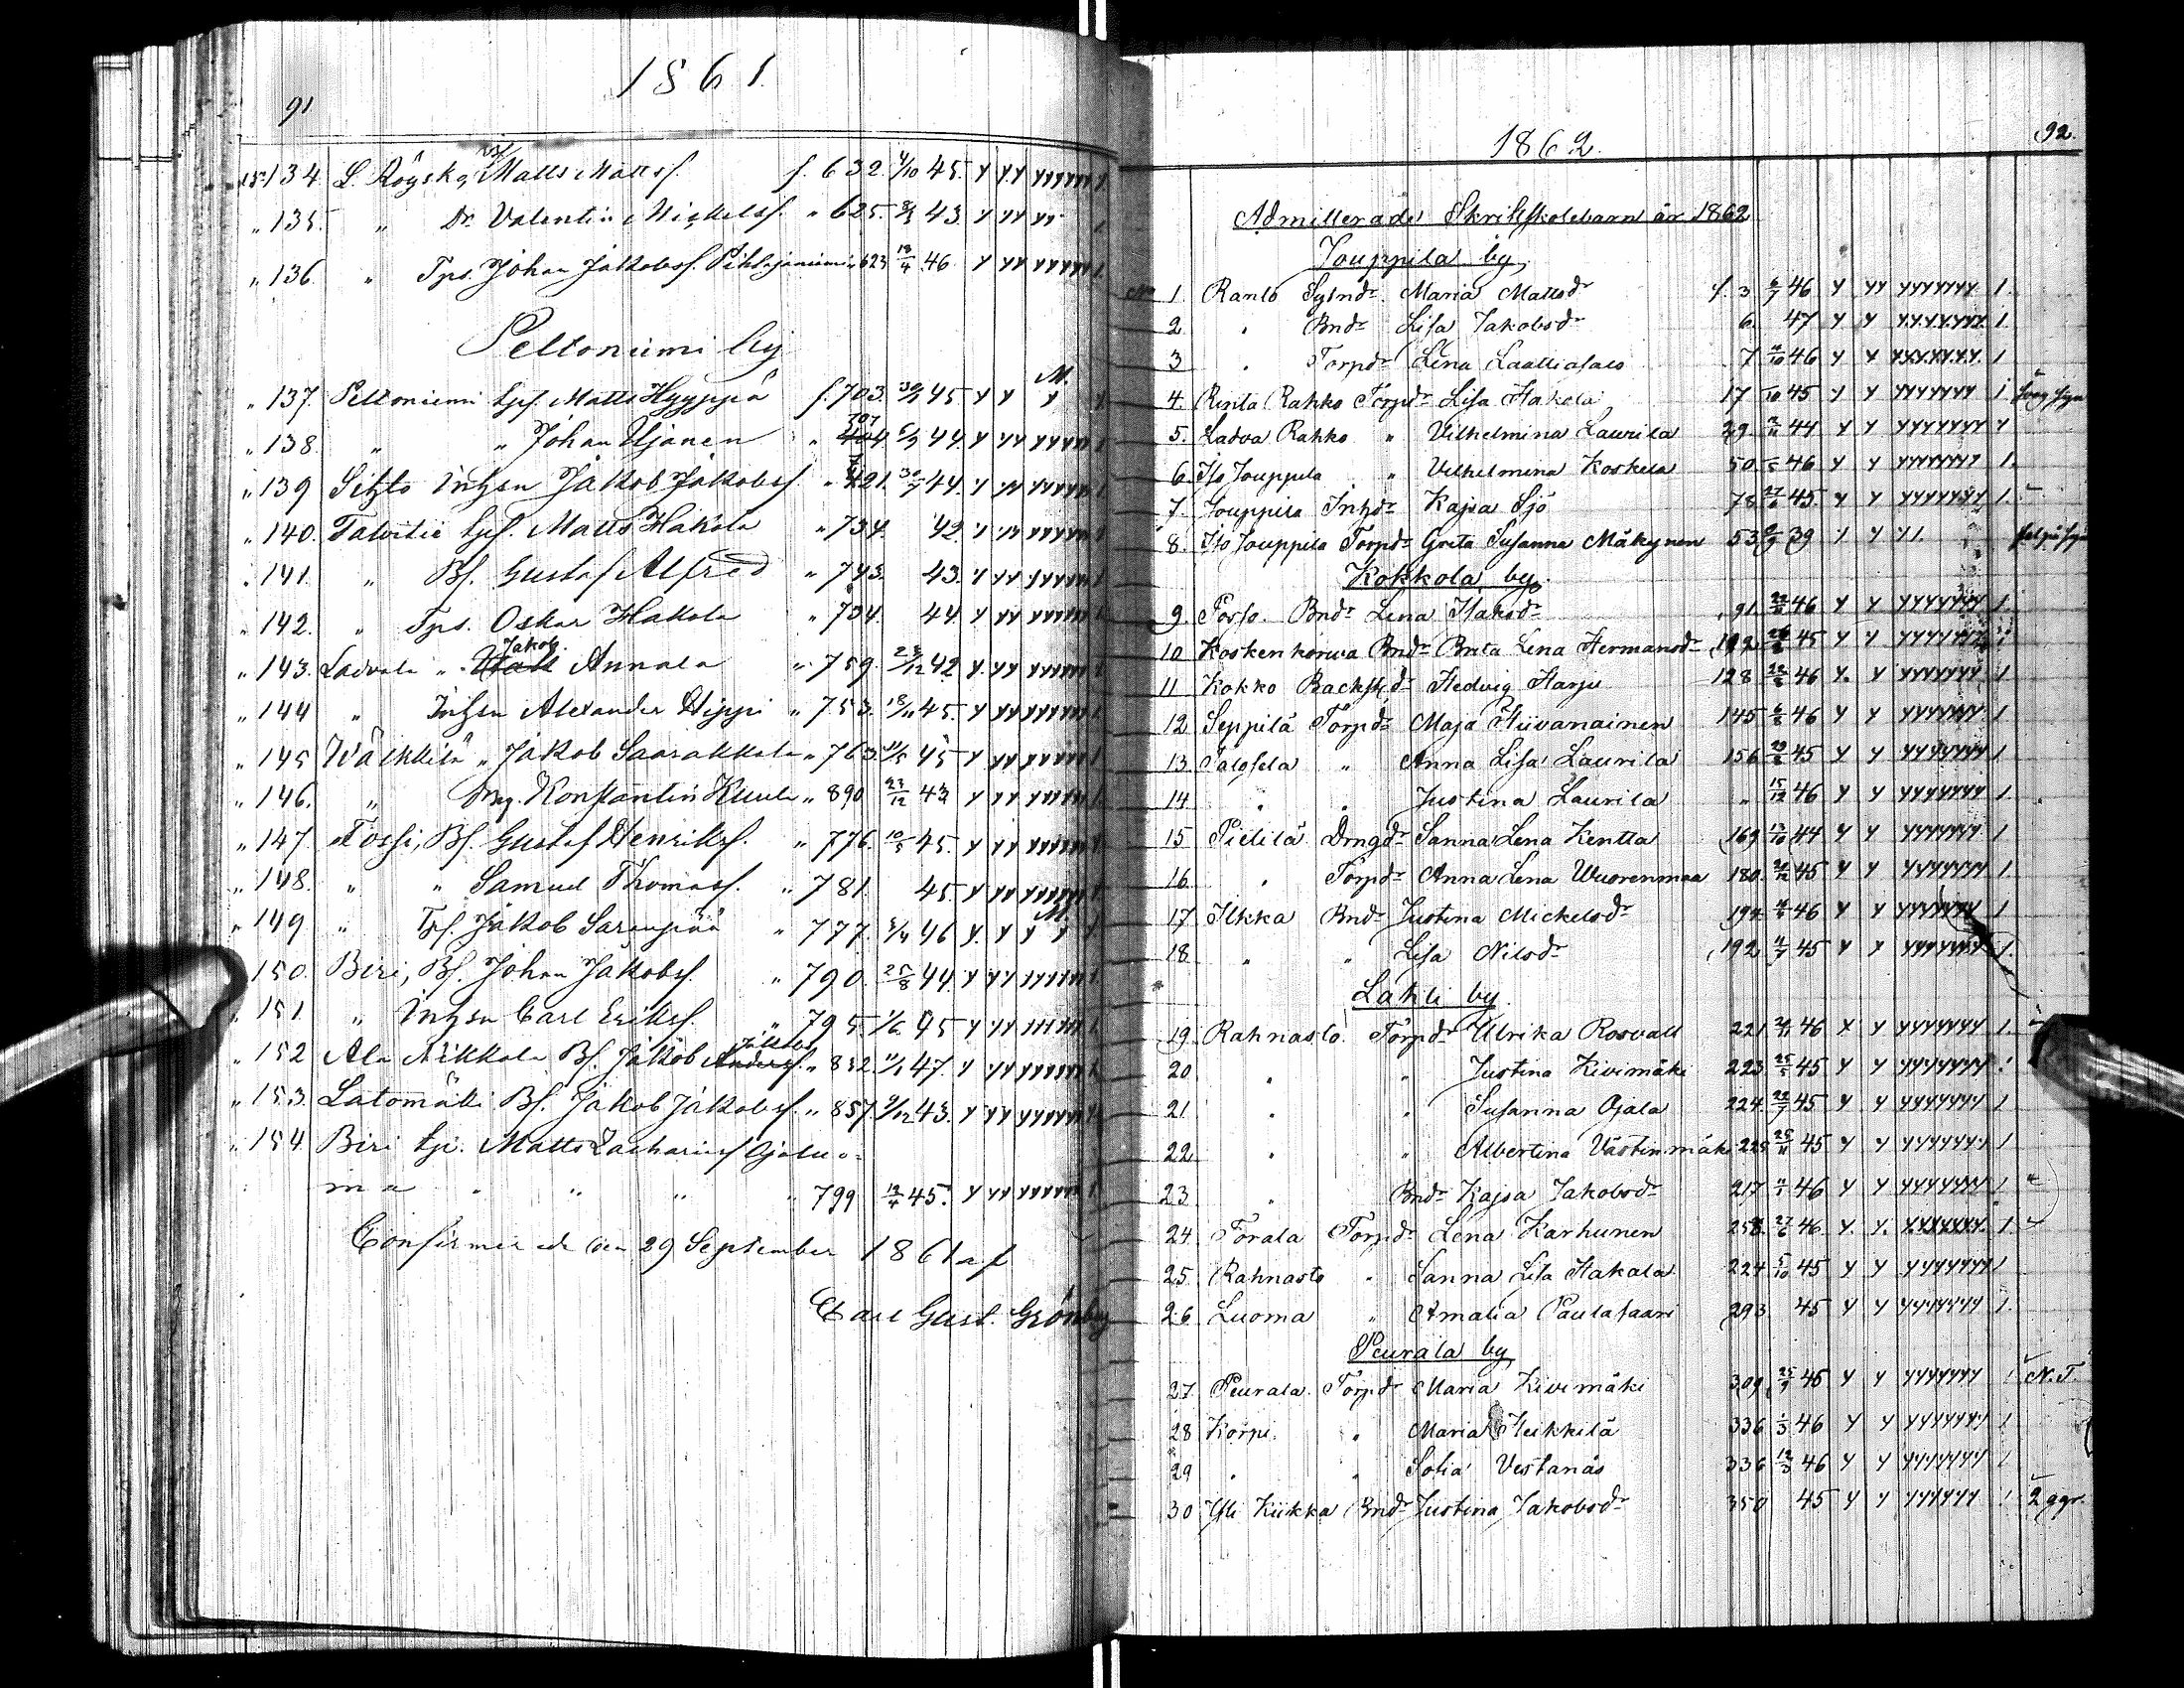 1861.
91
134 L. Röyskö Matts Mattsf. f. 632. 4/10 45. y yy yyyyyy 1.
" 135. " Dr. Valentin Mickelsf. " 625. 43. y yy yy 1
" 136. " Tps. Johan Jakobsf. Pihlajaniemi " 623 18/4 46 y yy yyyyyy 1.
Peltoniemi by
" 137. Peltoniemi tps. Matts Hyyppä f. 703. 45 y y M. y 1
" 138. " " Johan Ujanen " 707 44. y yy yyyyyy 1
" 139 Inhsn Jakob Jakobsf. " 44. y yy yyyyyy 1
" 140. Talvitie tps. Matts Hakola " 734. 42. y yy yyyyyy 1
" 141. " Bf. Gustaf Alfred " 743. 43. y yy yyyyyy 1
" 142. " Tps. Oskar Hakola " 734. 44. y yy yyyyyy 1
" 143. Ladvala " Jakob Annala " 759. 23/12 42 y yy yyyyyy 1
" 144 " Inhsn Alexander Hippi " 753. 18/11 45. y yy yyyyyy 1
" 145 Wälkkilä " Jakob Saarakkala " 763. 11/5 45 y yy yyyyyy 1
" 146. " Drg. Konstantin Kuula " 890 23/12 43 y yy yyyyyy 1
" 147. Tossi, Bf. Gustaf Henriksf. " 776. 10/5 45. y yy yyyyyy 1
" 148. " " Samuel Thomasf. " 781. 45 y yy yyyyyy 1
" 149 " Tps. Jakob Saranpää " 777. 46 y. y y M. y 1
150. Biri, Bf. Johan Jakobsf. " 790. 25/8 44. y yy yyyyyy 1
" 151. " Inhsn Carl Eriksf. " 795. 1/6 45 y yy yyyyyy 1
" 152 Ala Nikkola Bf. Jakob Jakobs " 852. 11/1 47. y yy yyyyyy 1
" 153. Latomäki Bf. Jakob Jakobsf. " 857. 9/12 43. y yy yyyyyy 1
" 154 Biri tps. Matts Zachariasf Ojaluo-
ma " " " " 799 12/4 45. y yy yyyyyy 1
Confirmerade den 29 September 1861 af
Carl Gust. Grönberg
92.
1862.
Admitterade Skriftskolebarn år 1862
Jouppila by
No 1. Ranto Sytnd:r Maria Mattsd:r f. 3 6/7 46 y yy yyyyyyy 1.
2 " Bnd:r Lisa Jakobsd:r 6. 47 y y yyyyyyy 1.
3 " Torpd:r Lena Laattiafaro 7 46 y y yyyyyyy 1
4. Rinta Rahko Torpd:r Lisa Hakola 17 45 y y yyyyyyy 1
5. Ladva Rahko " Vilhelmina Laurila 29. 44 y y yyyyyyy y
6. Iso Jouppila " Vilhelmina Koskela 50. 46 y y yyyyyyy 1.
7. Jouppila Inhd:r Kajsa Sjö 78 45. y y yyyyyyy 1.
8. Iso Jouppila Torpd:r Greta Susanna Mäkynen 53 39 y y y 1.
Kokkola by.
9. Porso. Bnd:r Lena Isaksd:r 91. 46 y y yyyyyyy 1.
10 Koskenkorwa Bnd:r Brita Lena Hermansd:r 45 y y yyyyyyy
11 Kokko Backstd:r Hedvig Harju 128 46 y. y yyyyyyy 1
12 Seppilä Torpd:r Maja Hiivanainen 145 46 y y yyyyyyy 1
13 " Anna Lisa Laurila 156 45 y y yyyyyyy 1
14 " " Justina Laurila " 15/12 46 y y yyyyyyy 1.
15 Pietilä Drngd:r Sanna Lena Kentta 169 13/10 44 y y yyyyyyy 1
16 " Torpd:r Anna Lena Wuorenmaa 180. 45 y y yyyyyyy 1
17 Ilkka Bnd:r Justina Mickelsd:r 194 46 y y yyyyyyy 1
18 " " Lisa Nilsd:r 192 45 y y yyyyyyy 1.
Lahti by.
19. Rahnasto. Torpd:r Ulrika Rosvall 221 46 y y yyyyyyy 1.
20 " " Justina Kivimäki 223 25/5 45 y y yyyyyyy 1
21 " " Susanna Ojala 224 22/7 45 y y yyyyyyy 1
22 " " Albertina Västinmäki 225 25/11 45 y y yyyyyyy 1
23 " Bnd:r Kajsa Jakobsd:r 217 46 y y yyyyyyy 1
24. Forala Torpd:r Lena Karhunen 258. 27/6 46. y. y. yyyyyyy. 1.
25. Rahnasto " Sanna Lisa Hakala 224 5/10 45 y y yyyyyyy 1
26 Luoma " Amalia Paulasaari 293 45 y y yyyyyyy 1.
Peurala by
27. Peurala Torpd:r Maria Kivimäki 309 25/9 45 y y yyyyyyy 1 N. T.
28 Korpi " Maria Heikkilä 336 1/3 46 y y yyyyyyy 1
29 " " Sofia Vestanäs 336 12/3 46 y y yyyyyyy 1
30 Yli Kiikka Bnd:r Justina Jakobsd:r 350 45 y y yyyyyy 1 2 ggr.